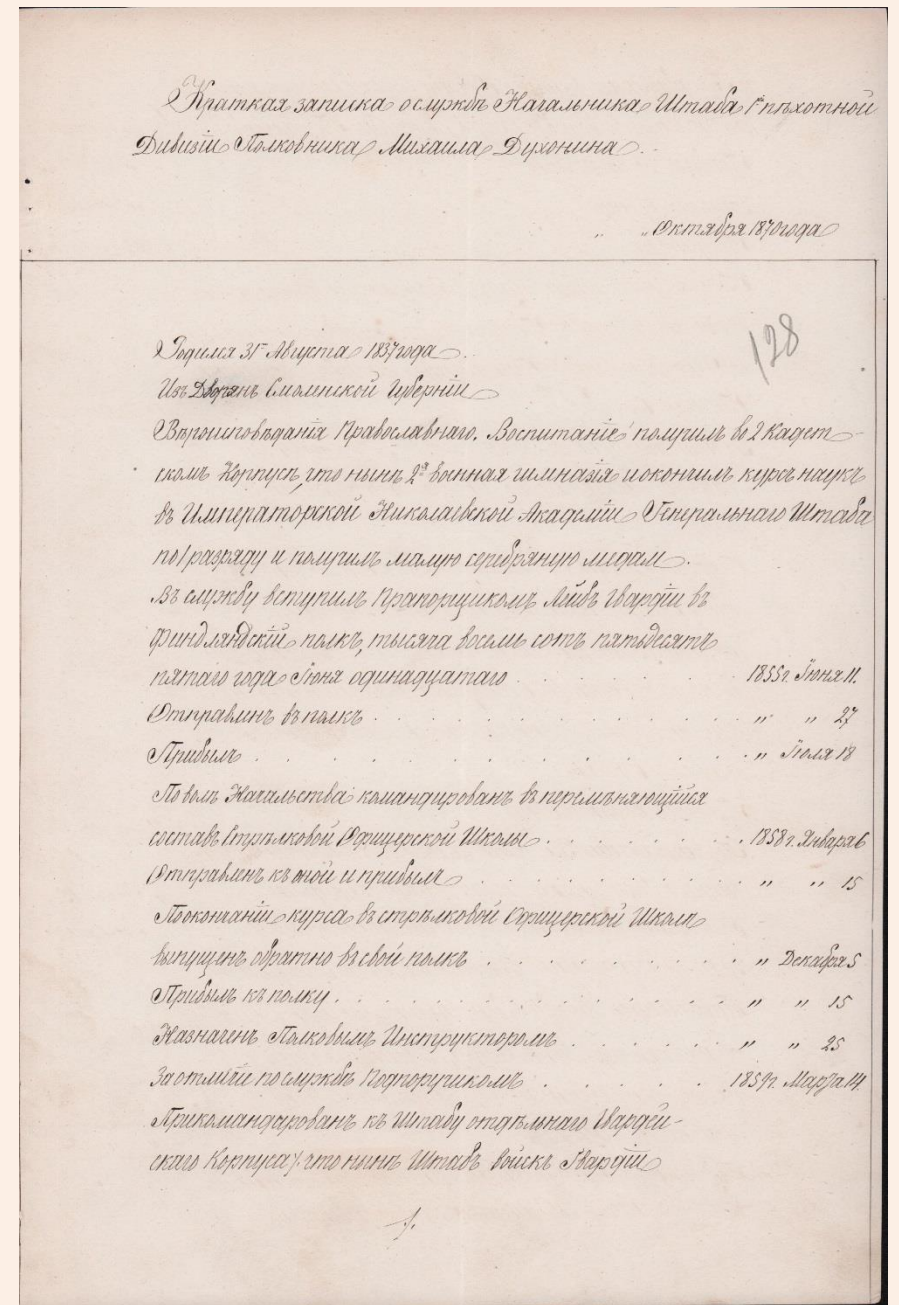 Краткая записка о службѣ Начальника Штаба 1й пѣхотной
Дивизіи Полковника Михаила Духонина.
„ „ Октября 1870 года
128
Родился 31го Августа 1837 года.
Изъ Дворянъ Смоленской Губерніи
Вѣроисповѣданія Православнаго. Воспитаніе получилъ во 2 Кадет-
скомъ Корпусѣ, что нынѣ 2я военная гимназія и окончилъ курсъ наукъ
въ Императорской Николаевской Академіи Генеральнаго Штаба
по 1 разряду и получилъ малую серебряную медаль.
Въ службу вступилъ Прапорщикомъ Лейбъ Гвардіи въ
Финляндскій полкъ, тысяча восемь сотъ пятьдесятъ
пятаго года Іюня одинадцатаго . . . . . . 1855 г. Іюня 11.
Отправленъ въ полкъ . . . . . . . . . „ „ 27
Прибылъ . . . . . . . . . . . „ Іюля 18
По волѣ Начальства командированъ въ перемѣняющійся
составъ Стрѣлковой Офицерской Школы . . . . . 1858 г. Января 6
Отправленъ къ оной и прибылъ . . . . . . . „ „ 15
По окончаніи курса въ стрѣлковой Офицерской Школѣ
выпущенъ обратно въ свой полкъ . . . . . . . „ Декабря 5
Прибылъ къ полку . . . . . . . . . . „ „ 15
Назначенъ Полковымъ Инструкторомъ . . . . . „ „ 25
За отличіе по службѣ Подпоручикомъ . . . . . 1859 г. Марта 14.
Прикомандированъ къ Штабу отдѣльнаго Гвардей-
скаго Корпуса /. что нынѣ Штабъ войскъ Гвардіи
1.